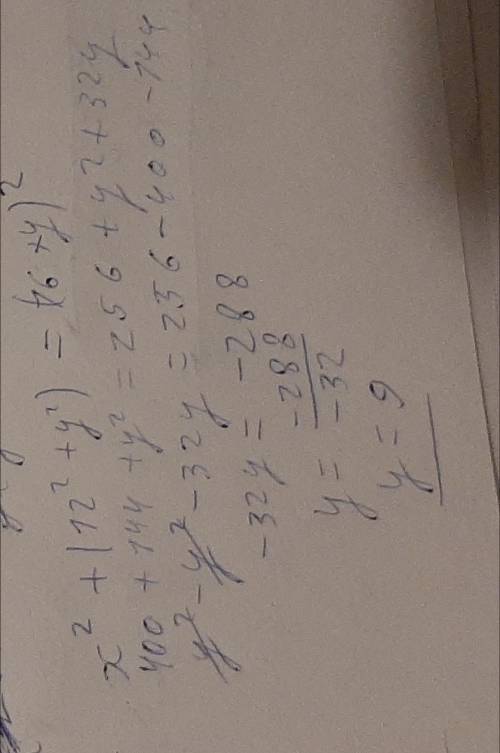 x² + (12² + y²) = (16 + y)²
400 + 144 + y² = 256 + y² + 32y
y² - y² - 32y = 256 - 400 - 144
-32y = -288
y = -288/-32
y = 9